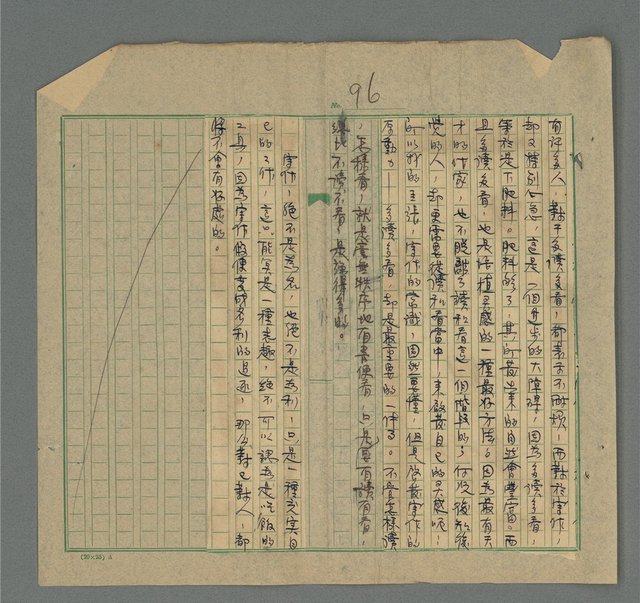 No. 96
有許多人，對于多讀多看，都表示不耐煩，而對於寫作，
却又特別心急，這是一個進步的大障碍，因為多讀多看，
等於是下肥料。肥料夠了，其所長出來的自然會豐富。而
且多讀多看，也是培植灵感的一種最好方法。因為最有天
才的作家，也不能離了讀和看這一個階段的
覺的人，却更需要從讀和看當中，來啟發自己的灵感呢！
所以我的主張，寫作的常識，固然要懂，但是啟發寫作的
原動力——多讀多看，却是最重要的一件事。不管怎樣讀
，怎樣看，就是毫無秩序地有書便看，只是要有讀有看，
總比不讀不看，是強得多的。
寫作，絕不是為名，也絕不是為利，只是一種充实自
己的工作，這只能算是一種志趣，絕不可以認為是吃飯的
工具，因為寫作假使變成名利的追逐，那么對己對人，都
將不會有好處的。
(20×25)